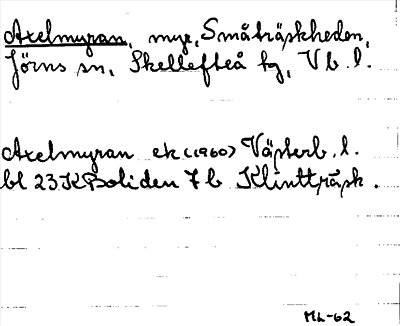 Axelmyran, myr, Småträskheden,
Jörns sn, Skellefteå tg, Vb. l.
Axelmyran ek (1960) Västerb. l.
bl 23K Boliden 7b Klintträsk.
ML-62